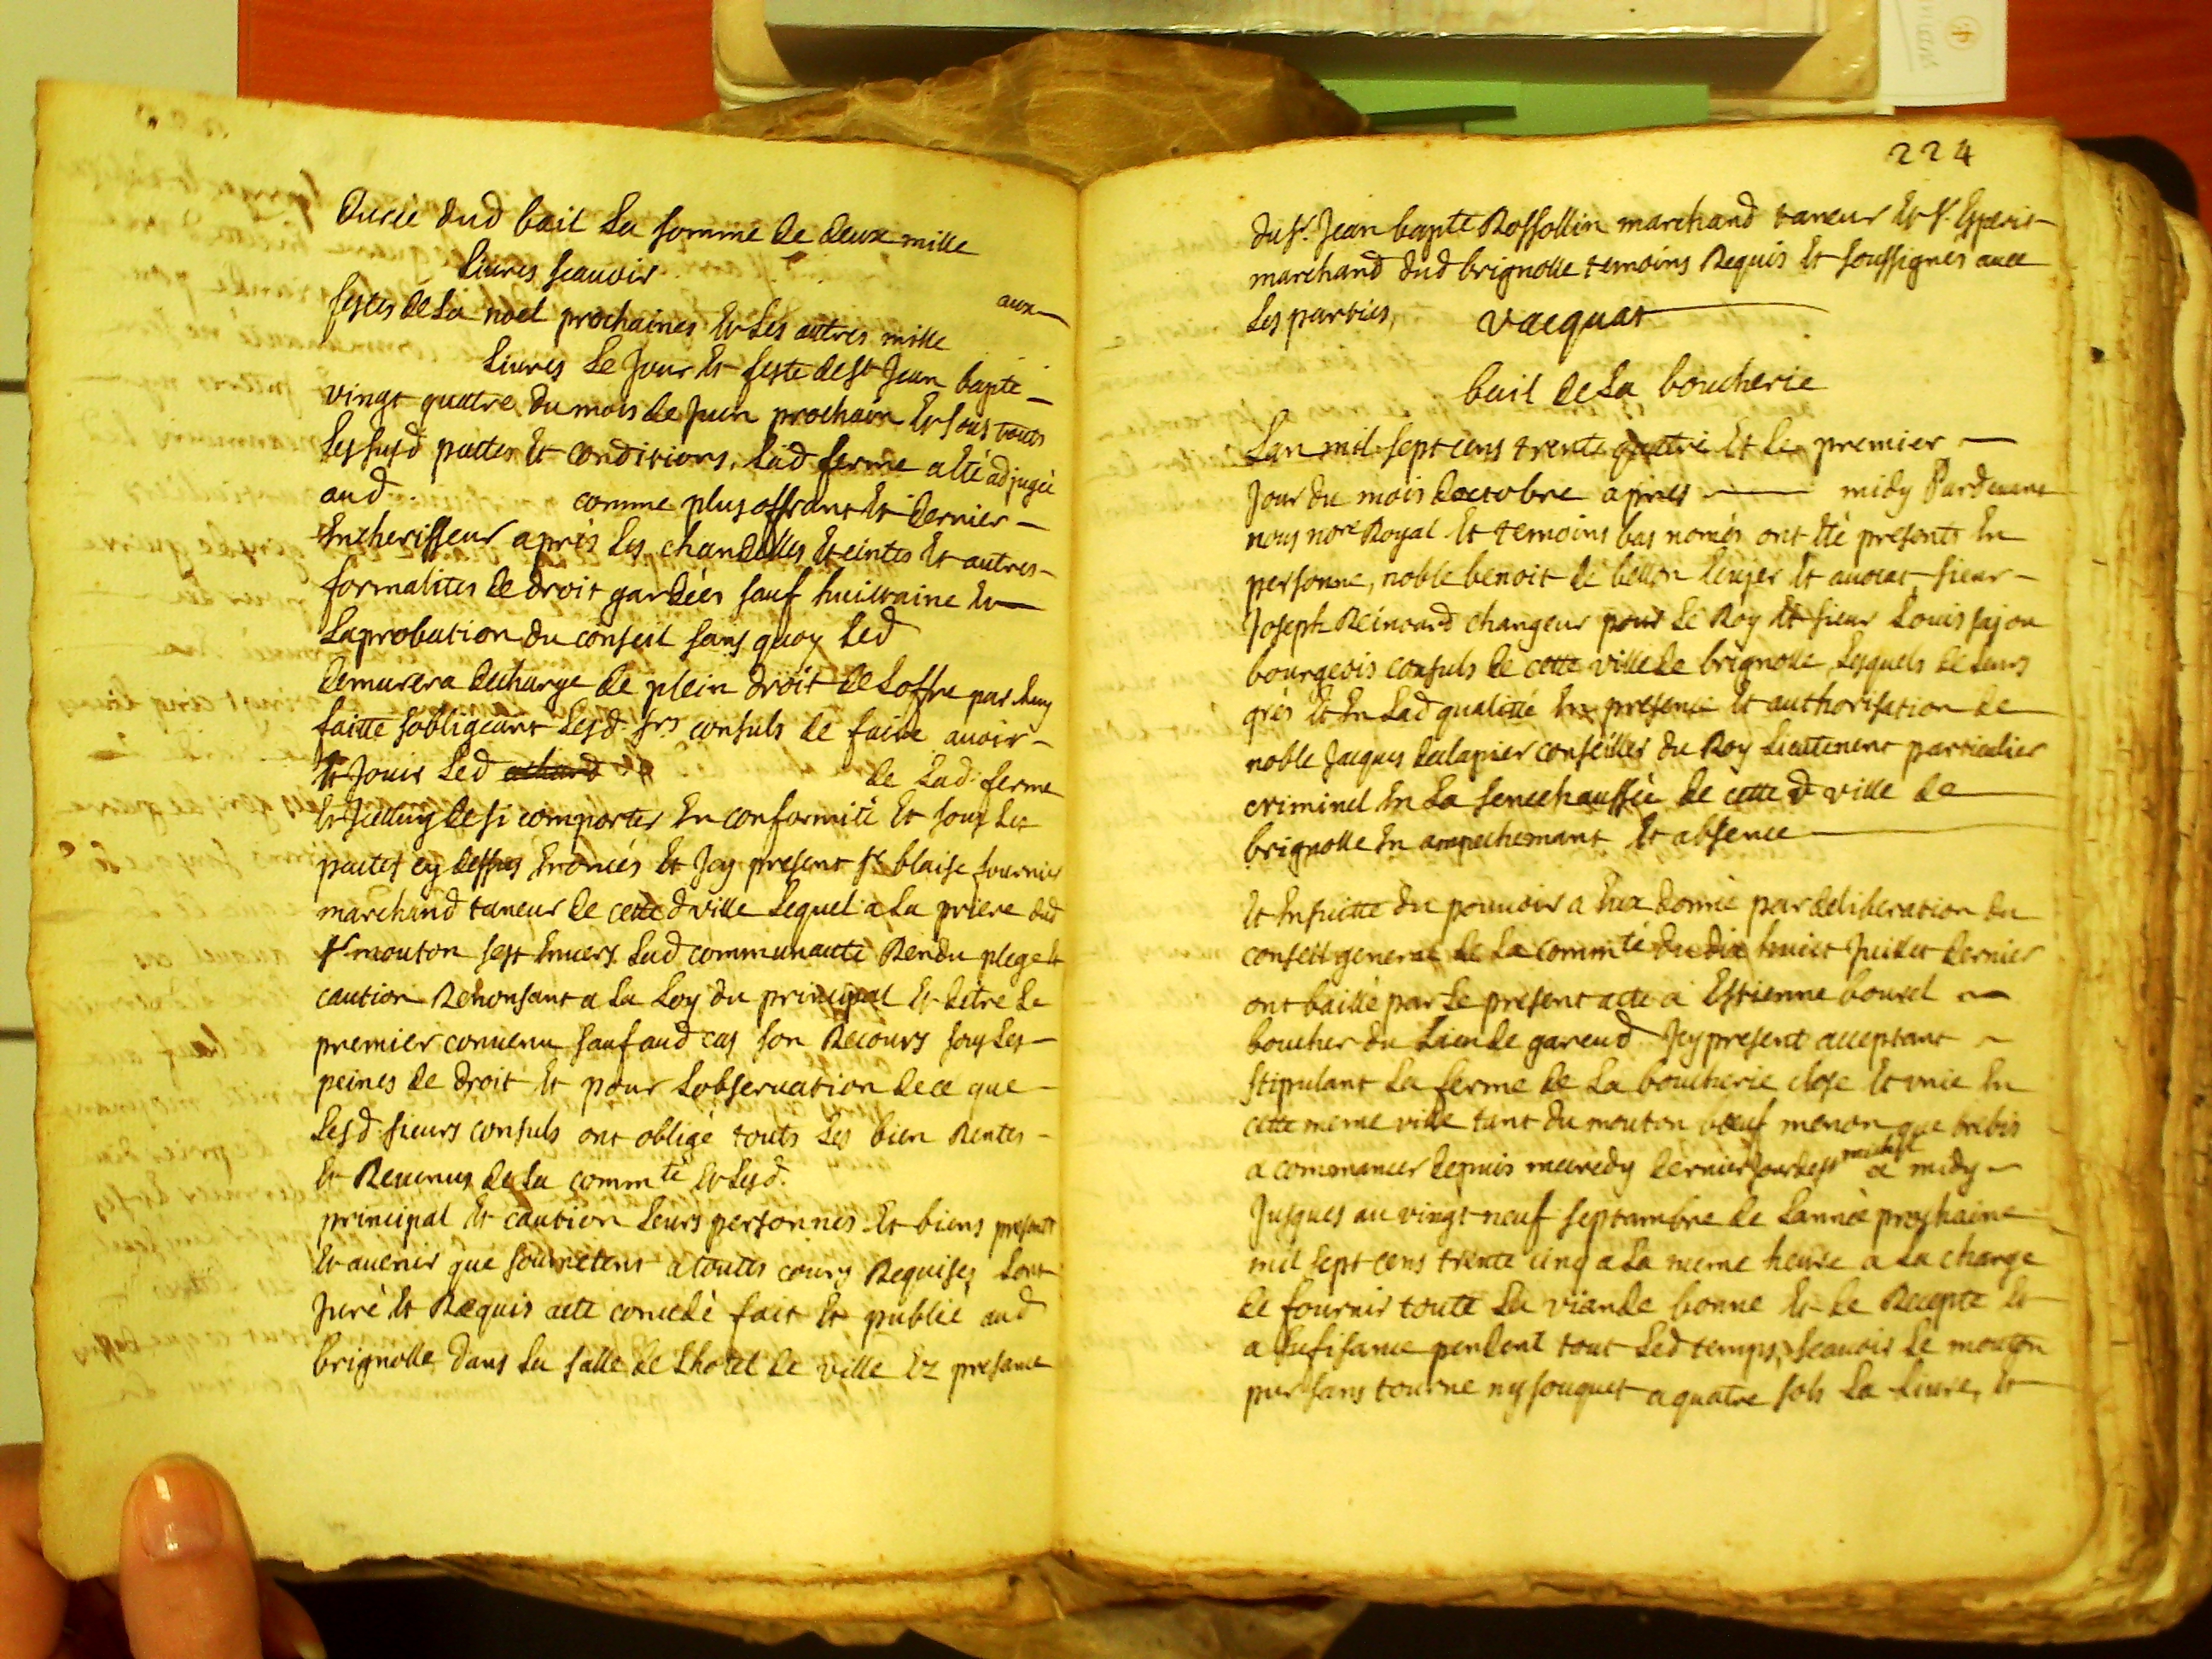 durée dud bail La somme de deux mille
Livres scauoir aux
festes de La noel prochaines Et Les autres mille
Livres Le Jour Et feste de st Jean bapte
vingt quatre du mois de Juin prochain Et sous touts
Les susd pactes Et conditions, Lad ferme a Eté adjugée
aud. comme plus offrant Et dernier
Encherisseur aprés Les chandelles Eteintes Et autres
formalites de droit gardées sauf huictaine Et
Laprobation du conseil sans quoy Led
demurera decharge de plein droit de Loffre par Luy
faitte sobligeant Lesd. srs consuls de faire auoir
Et Jouir Led de Lad. ferme
Et Jcelluy de si comporter En conformité Et sous Les
pactes cy dessus Enoncés Et Jcy present sr blaise fournier
marchand taneur de cette d ville Lequel a La priere dud
sr mouton sest Enuers Lad communauté Rendu plege Et
caution Renonsant a La Loy du principal Et detre Le
premier conuenu sauf aud cas son Recours sous Les
peines de droit Et pour Lobseruation de ce que
Lesd. sieurs consuls ont obligé touts Les bien Rentes
Et Reuenus de La commté Et Lesd.
principal Et caution Leurs personnes Et biens presents
Et auenir que soumetent a toutes cours Requises Lont
Juré Et Requis acte concedé fait Et publié aud
brignolle dans La salle de Lhotel de ville Ez presance
224
du sr. Jean bapte Rossollin marchand taneur Et sr. Esperit
marchand dud brignolle temoins Requis Et soussignés auec
Les parties, vacquat
bail de La boucherie
Lan mil sept cens trente quatre Et Le premier
Jour du mois doctobre apres midy Pardeuant
nous nore Royal Et temoins bas només ont Eté presents En
personne, noble benoit de bellon Ecuyer Et auocat, sieur
Joseph Reinoard changeur pour Le Roy Et sieur Louis fajon
bourgeois consuls de cette ville de brignolle Lesquels de Leurs
grés Et En Lad qualitté En presence Et authorisation de
noble Jacques conseiller du Roy Lieutenent particulier
criminel En La senechaussée de cette d ville de
brignolle En ampechemant Et absence
Et Ensuitte du pouuoir a Eux donné par deliberation du
conseil general de La commté du dix huict Juillet dernier
ont baillé par Le present acte a Estienne bourel
boucher du Lieu de gareud Jcy present acceptant
stipulant La ferme de La boucherie close Et vnie En
cette meme ville tant du mouton bœuf menon que brebis
a commancer depuis mecredy dernier Jour de st michel a midy
Jusques au vingt neuf septambre de Lannée prochaine
mil sept cens trente cinq a La meme heure a La charge
de fournir toute La viande bonne Et de Recepte Et
a sufisance pendent tout Led temps, scauoir Le mouton
pur sans tourne ny souquet a quatre sols La Liure, Et